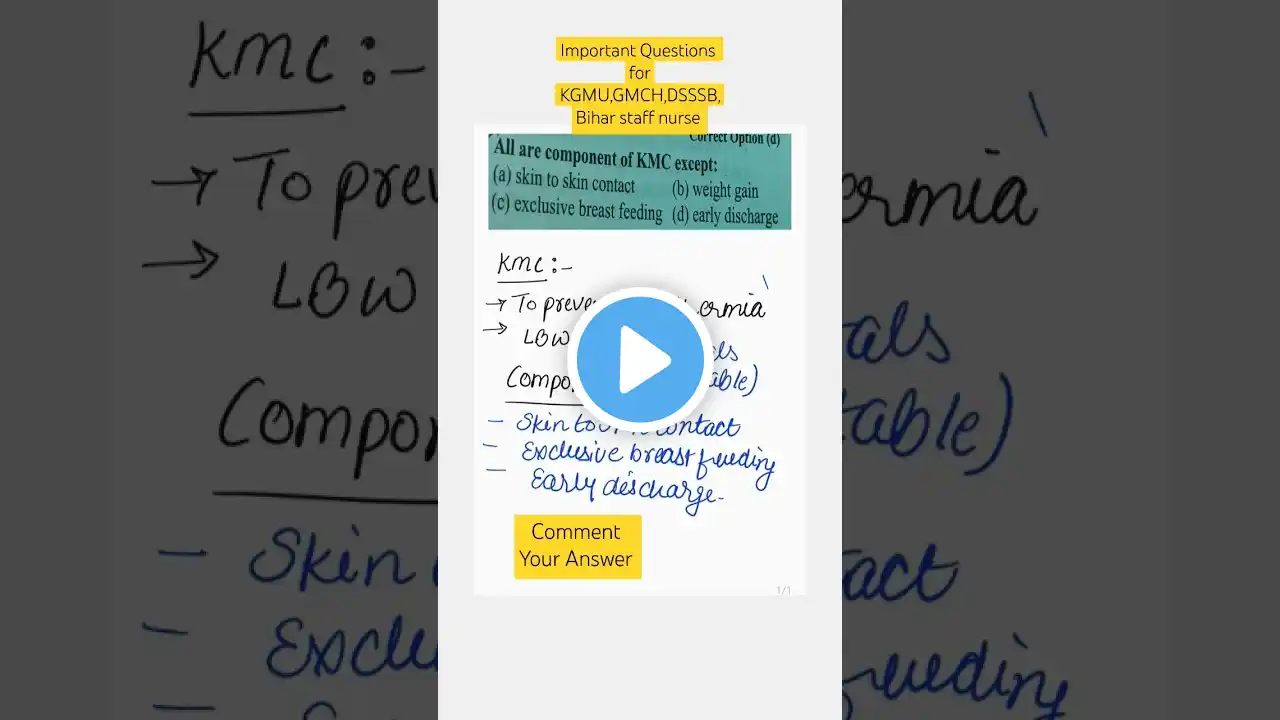 Important Questions
for
KGMU,GMCH,DSSSB,
Bihar staff nurse
Correct Option (d)
All are component of KMC except:
(a) skin to skin contact (b) weight gain
(c) exclusive breast feeding (d) early discharge
KMC:-
→ To
→ LBW
- Skin contact
- Exclusive breast feeding
- Early discharge.
Comment
Your Answer
1/1
KMC:-
→ To
→ LBW
- Skin